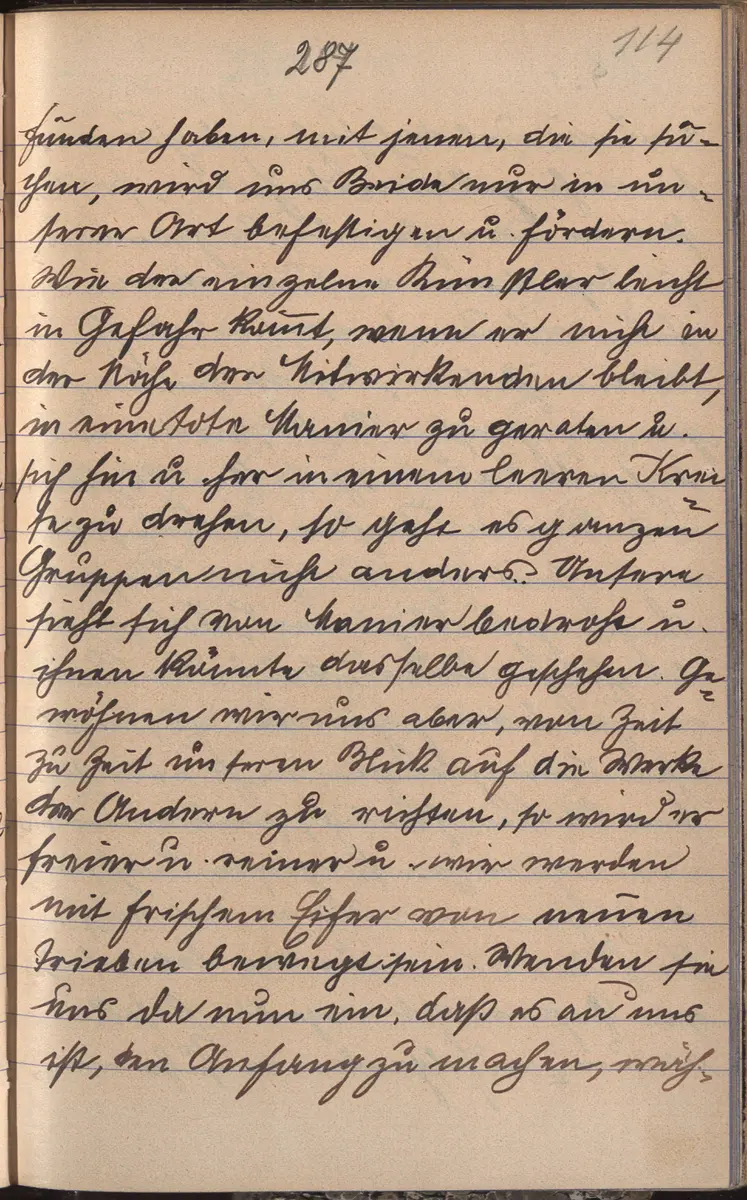 287
114
funden haben, mit jenen, die sie su-
chen, wird uns Beide nur in un-
serer Art befestigen u. fördern.
Wie der einzelne Künstler leicht
in Gefahr kommt, wenn er nicht in
der Nähe der Mitwirkenden bleibt,
in eine tote Manier zu geraten u.
sich hin u. her in einem leeren Krei-
se zu drehen, so geht es ganzen
Gruppen nicht anders. Unsere
sieht sich von Manier bedroht u.
ihnen könnte dasselbe geschehen. Ge-
wöhnen wir uns aber, von Zeit
zu Zeit unseren Blick auf die Werke
der Andern zu richten, so wird er
freier u. reiner u. wir werden
mit frischem Eifer von neuen
Trieben bewegt sein. Wenden sie
uns da nun ein, daß es an uns
ist, den Anfang zu machen, wäh-